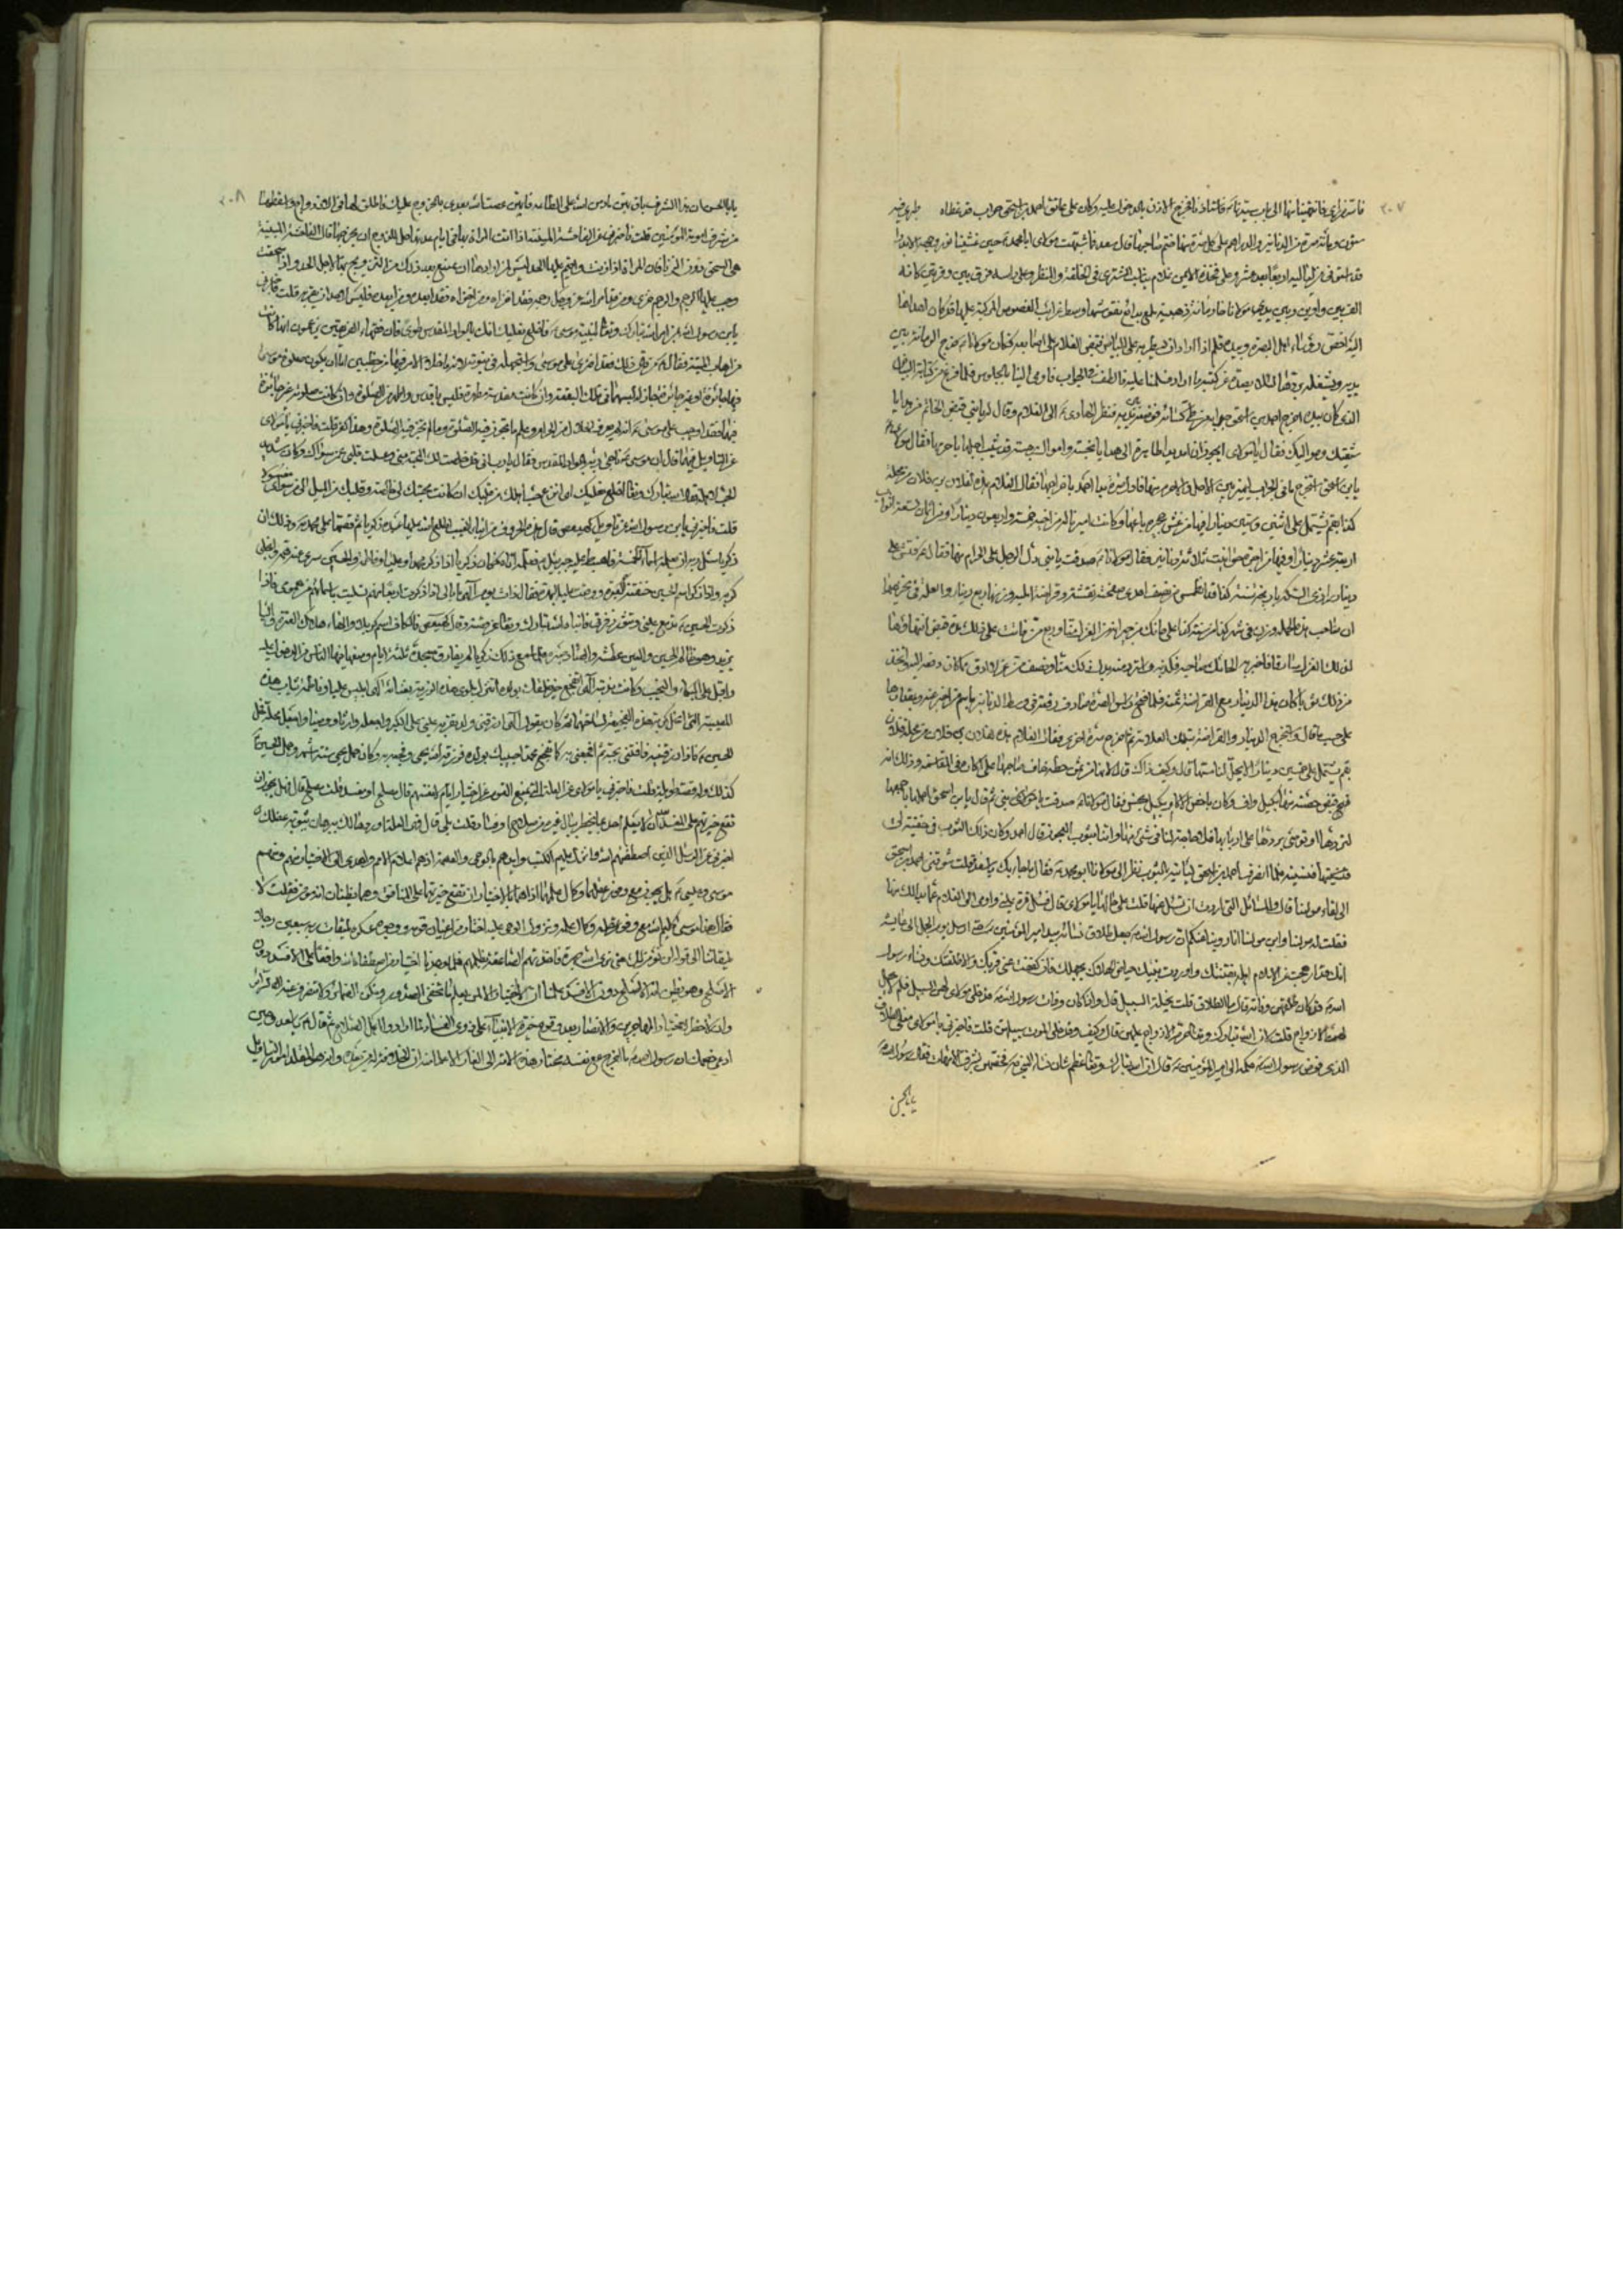 ٢٠٧
فاستقر أي فانتهينا منها الى باب سيدنا ع فاستأذنا فخرج الاذن بالدخول عليه وكان على عاتق احمد بن اسحق جراب قد غطاه طبري فيه
ستون ومائة صرة من الدنانير والدراهم على كل صرة منها ختم صاحبها قال سعد فما شبهت مولاى ابا محمد ع حين غشينا نور وجهه الا ببدر
قد استوفى من لياليه اربعا بعد عشر وعلى فخذه الايمن غلام يناسب المشترى فى الخلقة والمنظر وعلى راسه فرق بين وفرتين كانه
الف بين واوين وبين يدى مولانا رمانة ذهبية تلمع بدائع نقوشها وسط غرائب الفصوص المركبة عليها قد كان اهداها
اليه بعض رؤساء اهل البصرة وبيده قلم اذا اراد ان يسطر به على البياض قبض الغلام على اصابعه فكان مولانا ع يدحرج الرمانة بين
يديه ويشغله بردها لئلا يصده عن كتبة ما اراد فسلمنا عليه فالطف فى الجواب واومى الينا بالجلوس فلما فرغ من كتبة البياض
الذى كان بيده اخرج احمد بن اسحق جرابه من طى كسائه فوضعه بين يديه فنظر الهادى ع الى الغلام وقال له يا بنى فض الخاتم عن هدايا
شيعتك ومواليك فقال يا مولاى ايجوز ان امد يدا طاهرة الى هدايا نجسة واموال رجسة قد شيب احلها باحرمها فقال مولاى
يابن اسحق استخرج ما فى الجراب ليميز بين الاحل والاحرم منها فاول صرة بدأ احمد باخراجها فقال الغلام هذه لفلان بن فلان من محلة
كذا بقم تشتمل على اثنين وستين دينارا فيها من ثمن حجرة باعها وكانت ارثا له من اخيه خمسة واربعون دينارا ومن اثمان تسعة اثواب
اربعة عشر دينارا وفيها من اجرة حوانيت ثلاثة دنانير فقال مولانا ع صدقت يا بنى دل الرجل على الحرام منها فقال ع فتش على
دينار رازى السكة تاريخه سنة كذا قد انطمس من نصف احدى صفحتيه نقشه وقراضة آملية وزنها ربع دينار والعلة فى تحريمها
ان صاحب هذه الجملة وزن فى شهر كذا من سنة كذا على حائك من جيرانه من الغزل منا وربع من فاتت على ذلك مدة قبض انتهاؤها
لذلك الغزل سارقا فاخبر به الحائك صاحبه فكذبه واسترد منه بدل ذلك منا ونصف من غزلا ادق مما كان دفعه اليه واتخذ
من ذلك ثوبا كان هذا الدينار مع القراضة ثمنه فلما فتح رأس الصرة صادف رقعة فى وسط الدنانير باسم من اخبر عنه وبمقدارها
على حسب ما قال واستخرج الدينار والقراضة بتلك العلامة ثم اخرج صرة اخرى فقال الغلام هذه لفلان بن فلان من محلة فلان
بقم تشتمل على خمسين دينارا لا يحل لنا مسها قال وكيف ذاك قال لانها من ثمن حنطة حاف صاحبها على اكاره فى المقاسمة وذلك انه
قبض حصته منها بكيل واف وكان ما خص الاكار بكيل بخس فقال مولانا ع صدقت يا بنى ثم قال يابن اسحق احملها باجمعها
لتردها او توصى بردها على اربابها فلا حاجة لنا فى شىء منها وائتنا بثوب العجوز قال احمد وكان ذلك الثوب فى حقيبة لى
فنسيته فلما انصرف احمد بن اسحق ليأتيه بالثوب نظر الى مولانا ابو محمد ع فقال ما جاء بك يا سعد فقلت شوقنى احمد بن اسحق
الى لقاء مولينا قال والمسائل التى اردت ان تسأل عنها قلت على حالها يا مولاى قال فسل قرة عينى واومى الى الغلام عما بدا لك منها
فقلت له مولينا وابن مولينا انا روينا عنكم ان رسول الله ص جعل طلاق نسائه بيد امير المؤمنين ع حتى ارسل يوم الجمل الى عايشة
انك قد ارهجت على الاسلام اهله بفتنتك واوردت بنيك حياض الهلاك بجهلك فان كففت عنى غربك والا طلقتك ونساء رسول
الله ص قد كان طلاقهن وفاته قال ما الطلاق قلت تخلية السبيل قال واذا كان وفات رسول الله ص قد خلى لهن السبيل فلم لا يحل
لهن الازواج قلت لان الله تبارك وتعالى حرم الازواج عليهن قال وكيف وقد خلى الموت سبيلهن قلت فاخبرنى يا مولاى عن معنى الطلاق
الذى فوض رسول الله ص حكمه الى امير المؤمنين ع قال ان الله تبارك وتعالى عظم شان نساء النبى ص فخصهن بشرف الامهات فقال رسول الله ص
يا ابا الحسن
٢٠٨
يا ابا الحسن ان هذا الشرف باق بهن ما دمن لله على الطاعة فايتهن عصت الله بعدى بالخروج عليك فاطلق لها فى الازواج واسقطها
من شرف امومة المؤمنين قلت فاخبرنى عن الفاحشة المبينة اذا اتت المراة بها فى ايام عدتها حل للزوج ان يخرجها قال الفاحشة المبينة
هى السحق دون الزنا فان المراة اذا زنت واقيم عليها الحد ليس لمن ارادها ان يمتنع بعد ذلك من التزويج بها لاجل الحد واذا سحقت
وجب عليها الرجم والرجم خزى ومن قد امر الله عز وجل برجمه فقد اخزاه ومن اخزاه فقد ابعده ومن ابعده فليس لاحد ان يقربه قلت فاخبرنى
يابن رسول الله عن امر الله تبارك وتعالى لنبيه موسى ع فاخلع نعليك انك بالواد المقدس طوى فان فقهاء الفريقين يزعمون انها كانت
من اهاب الميتة فقال ع من قال ذلك فقد افترى على موسى واستجهله فى نبوته لانه ما خلا الامر فيها من خطبين اما ان يكون صلوة موسى
فيها جائزة او غير جائزة فان كانت صلوته جائزة جاز له لبسهما فى تلك البقعة وان كانت مقدسة مطهرة فليس باقدس واطهر من الصلوة وان كانت صلوته غير جائزة
فيهما فقد اوجب على موسى ع انه لم يعرف الحلال من الحرام وعلم ما تجوز فيه الصلوة وما لم تجز فيه الصلوة وهذا كفر قلت فاخبرنى يا مولاى
عن التاويل فيهما قال ان موسى ع ناجى ربه بالواد المقدس فقال يا رب انى قد اخلصت لك المحبة منى وغسلت قلبى عمن سواك وكان شديد
الحب لاهله فقال الله تبارك وتعالى اخلع نعليك اى انزع حب اهلك من قلبك ان كانت محبتك لى خالصة وقلبك من الميل الى من سواى مغسولا
قلت فاخبرنى يابن رسول الله عن تاويل كهيعص قال هذه الحروف من انباء الغيب اطلع الله عليها عبده زكريا ثم قصها على محمد ص وذلك ان
زكريا سئل ربه ان يعلمه اسماء الخمسة فاهبط عليه جبرئيل ع فعلمه اياها فكان زكريا اذا ذكر محمدا وعليا وفاطمة والحسن سرى عنه همه وانجلى
كربه واذا ذكر اسم الحسين خنقته العبرة ووقعت عليه البهرة فقال ذات يوم الهى ما بالى اذا ذكرت اربعا منهم تسليت باسمائهم من همومى واذا
ذكرت الحسين ع تدمع عينى وتثور زفرتى فانبأه الله تبارك وتعالى عن قصته وقال كهيعص فالكاف اسم كربلا والهاء هلاك العترة والياء
يزيد وهو ظالم الحسين والعين عطشه والصاد صبره فلما سمع ذلك زكريا لم يفارق مسجده ثلثة ايام ومنع فيها الناس من الدخول عليه
واقبل على البكاء والنحيب وكانت ندبته الهى اتفجع خير خلقك بولده اتنزل بلوى هذه الرزية بفنائه الهى اتلبس عليا وفاطمة ثياب هذه
المصيبة الهى اتحل كربة هذه الفجيعة بساحتهما ثم كان يقول الهى ارزقنى ولدا تقر به عينى على الكبر واجعله وارثا ووصيا واجعل محله منى محل
الحسين ع فاذا رزقتنيه فافتنى بحبه ثم افجعنى به كما تفجع محمدا حبيبك بولده فرزقه الله يحيى وفجعه به وكان حمل يحيى ستة اشهر وحمل الحسين ع
كذلك وله قصة طويلة قلت فاخبرنى يا مولاى عن العلة التى تمنع القوم من اختيار امام لانفسهم قال مصلح او مفسد قلت مصلح قال فهل يجوز ان
تقع خيرتهم على المفسد بعد ان لا يعلم احد ما يخطر ببال غيره من صلاح او فساد قلت بلى قال فهى العلة اوردها لك ببرهان يثق به عقلك
اخبرنى عن الرسل الذين اصطفيهم الله وانزل عليهم الكتب وايدهم بالوحى والعصمة اذ هم اعلام الامم واهدى الى الاختيار منهم ومنهم
موسى وعيسى ع هل يجوز مع وفور عقلهما وكمال علمهما اذا هما بالاختيار ان تقع خيرتهما على المنافق وهما يظنان انه مؤمن فقلت لا
فقال هذا موسى كليم الله مع وفور عقله وكمال علمه ونزول الوحى عليه اختار من اعيان قومه ووجوه عسكره لميقات ربه سبعين رجلا
لميقاتنا الى قوله لن نؤمن لك حتى نرى الله جهرة فاخذتهم الصاعقة بظلمهم فلما وجدنا اختيار من اصطفاه الله واقعا على الافسد دون
الاصلح وهو يظن انه الاصلح دون الافسد علمنا ان لا اختيار الا لمن يعلم ما تخفى الصدور وتكن الضمائر وتتصرف عنه السرائر
وان لا خطر لاختيار المهاجرين والانصار بعد وقوع خيرة الانبياء على ذوى الفساد لما ارادوا اهل الصلاح ثم قال مولانا يا سعد وحين
ادعى خصمك ان رسول الله ص ما اخرج مع نفسه مختار هذه الامة الى الغار الا علما منه ان الخلافة له من بعده وانه هو المقلد امور التاويل